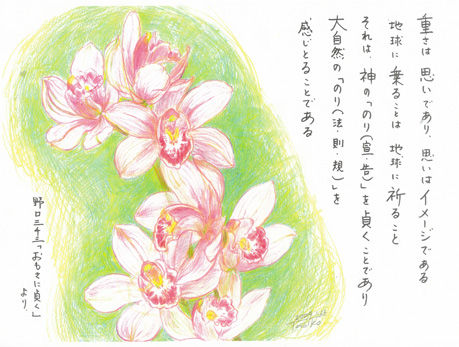 重さは 思いであり、思いはイメージである
地球に 乗ることは 地球に祈ること
それは、神の「のり(宣・告)」を貞くことであり
大自然の「のり(法・則・規)」を
感じとることである
野口三千三「おもさに貞く」
より